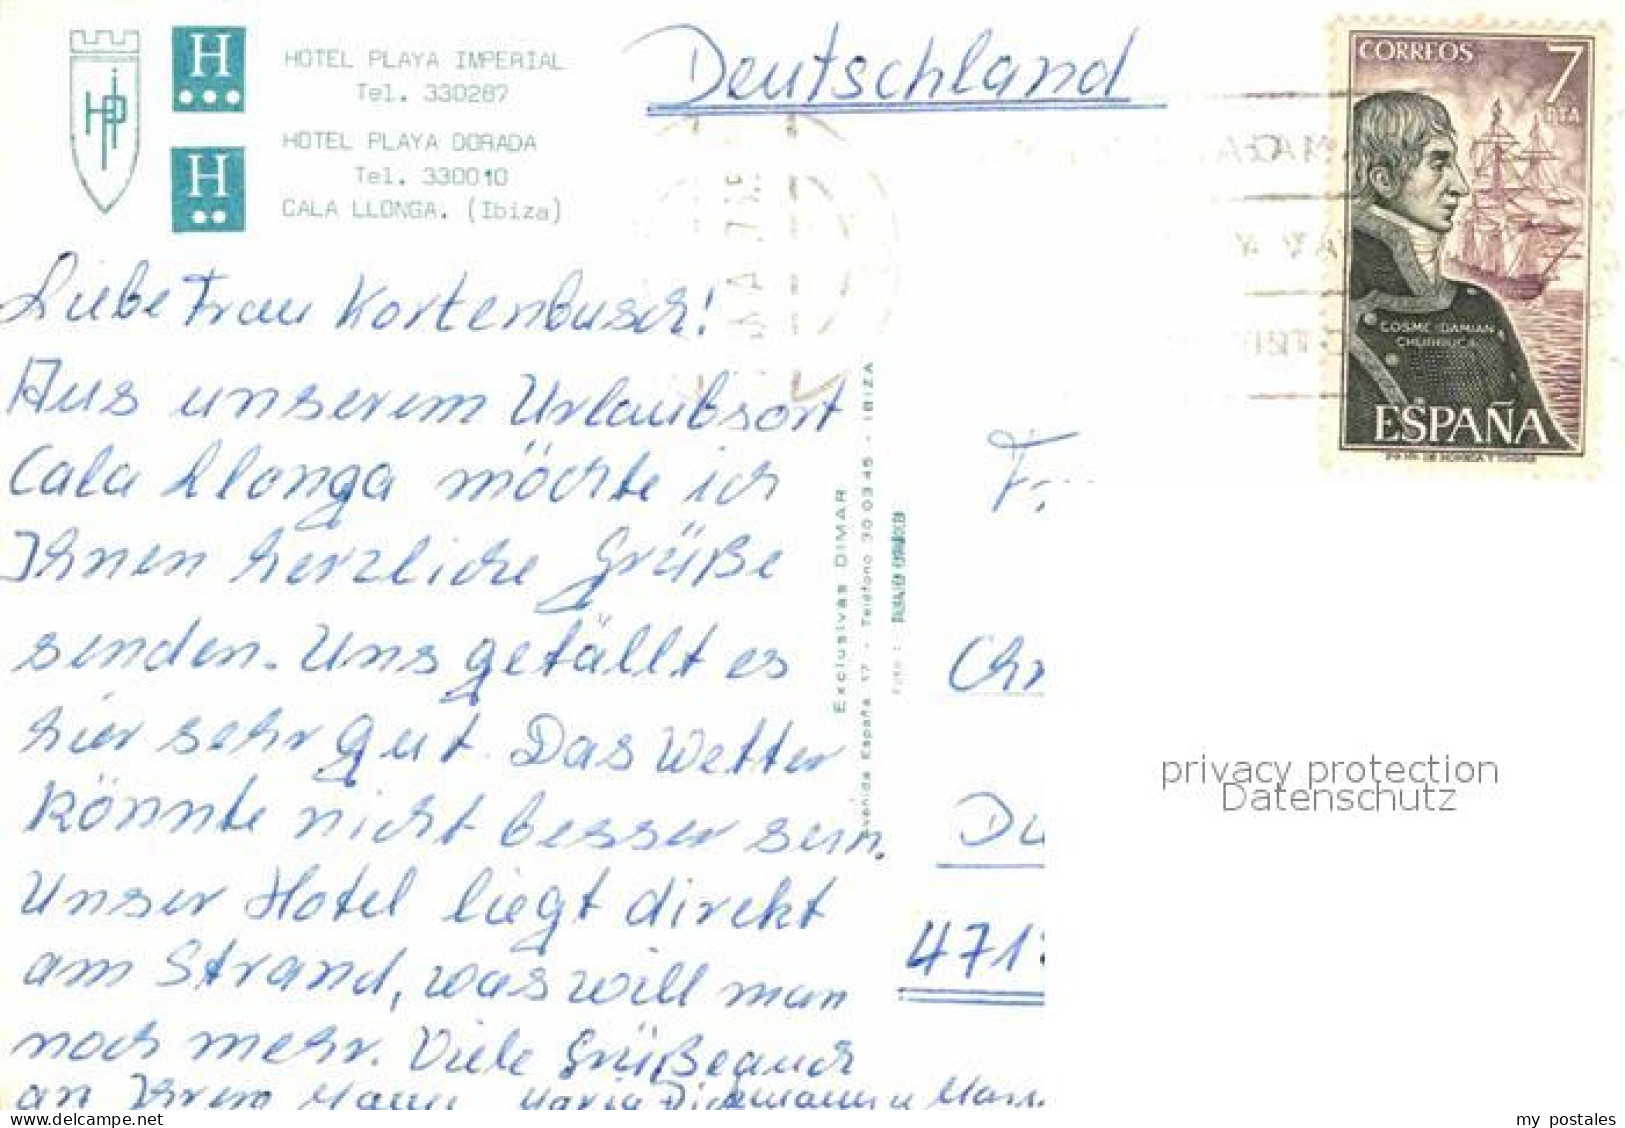 HOTEL PLAYA IMPERIAL
Tel. 330287
HOTEL PLAYA DORADA
Tel. 330010
CALA LLONGA. (Ibiza)
H
H
Deutschland
CORREOS 7
PTA
COSME DAMIAN
CHURRUCA
ESPAÑA
Liebe Frau Kortenbusch!
Aus unserem Urlaubsort
Cala Llonga möchte ich
Ihnen herzliche Grüße
senden. Uns gefällt es
hier sehr gut. Das Wetter
könnte nicht besser sein.
Unser Hotel liegt direkt
am Strand, was will man
noch mehr. Viele Grüße auch
an Ihren Mann Maria
Exclusivas DIMAR
Avenida España, 17 - Teléfono 30 03 45 - IBIZA
Fr
Chr
Du
471
privacy protection
Datenschutz
my postales